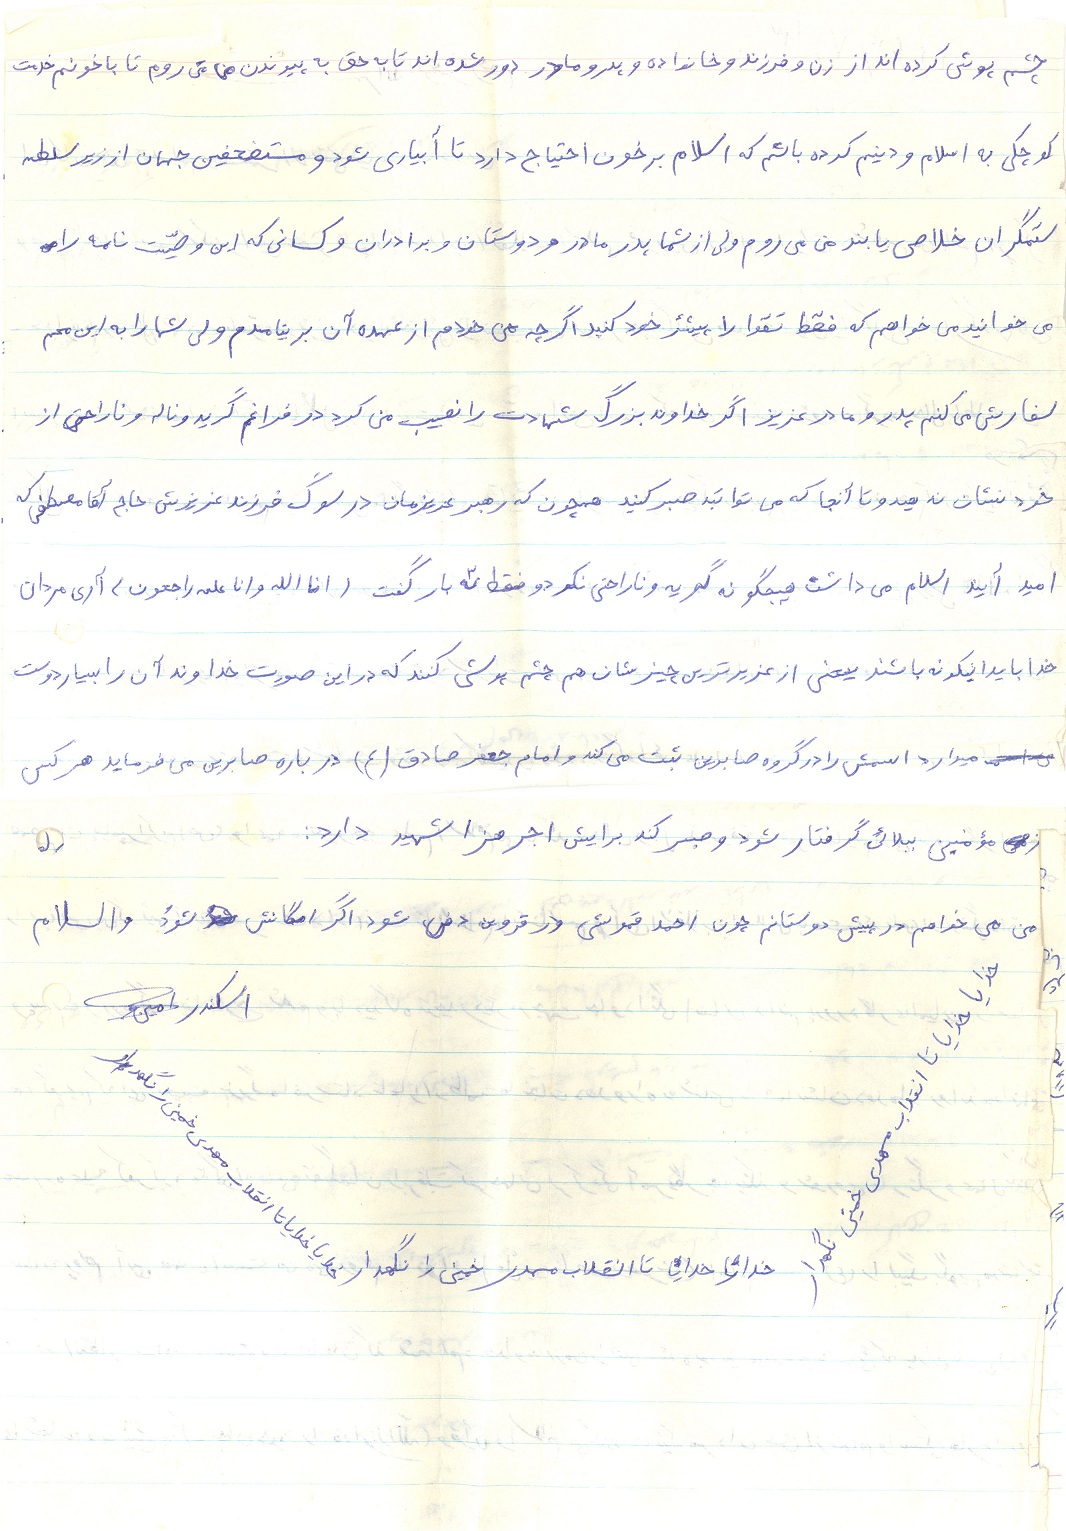 چشم پوشی کرده اند از زن و فرزند و خانواده و پدر و مادر دور شده اند تا به حق به پیوندن من می روم تا با خونم خدمت
کوچکی به اسلام و دینم کرده باشم که اسلام بر خون احتیاج دارد تا أبیاری شود و مستضعفین جهان از زیر سلطه
ستمگران خلاصی یابند من می روم ولی از شما پدر مادر و دوستان و برادران و کسانی که این وصیّت نامه را
می خوانید می خواهم که فقط تقوا را پیشئز خود کنید اگر چه من خودم از عهده آن بر نیامدم ولی شما را به این مهم
سفارش می کنم پدر و مادر عزیز اگر خداوند بزرگ شهادت را نصیب من کرد در فراغم گرید و ناله و ناراحتی از
خود نشان ندهید و تا أنجا که می توانید صبر کنید همچون که رهبر عزیزمان در سوگ فرزند عزیزش حاج آقا مصطفی که
امید أیید اسلام می داشت هیچگونه گریه و ناراحتی نکرد و فقط سه بار گفت ( انا الله و انا علیه راجعون ) آری مردان
خدا باید اینگونه باشند یعنی از عزیزترین چیزشان هم چشم پوشی کنند که در این صورت خداوند آن را بسیار دوست
میدارد اسمش را در گروه صابرین ثبت می کند و امام جعفر صادق (ع) در باره صابرین می فرماید هر کس
ز مؤمنین ببلائی گرفتار شود و صبر کند برایش اجر هزا شهید دارد:
من می خواهم در پیش دوستانم چون احمد قمرشی در قزوین دفن شود اگر امکانش شود والسلام
اسکندر امینی
خدایا خدایا تا انقلاب مهدی خمینی نگهدار
خدایا خدایا تا انقلاب مهدی خمینی را نگهدار
خدایا خدایا تا انقلاب مهدی خمینی را نگهدار